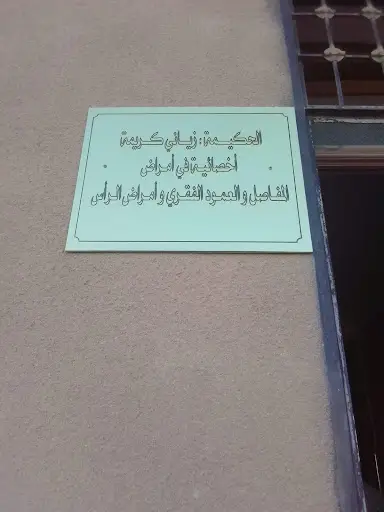 الحكيمة : زياني كريمة
أخصائية في أمراض
المفاصل و العمود الفقري و أمراض الرأس